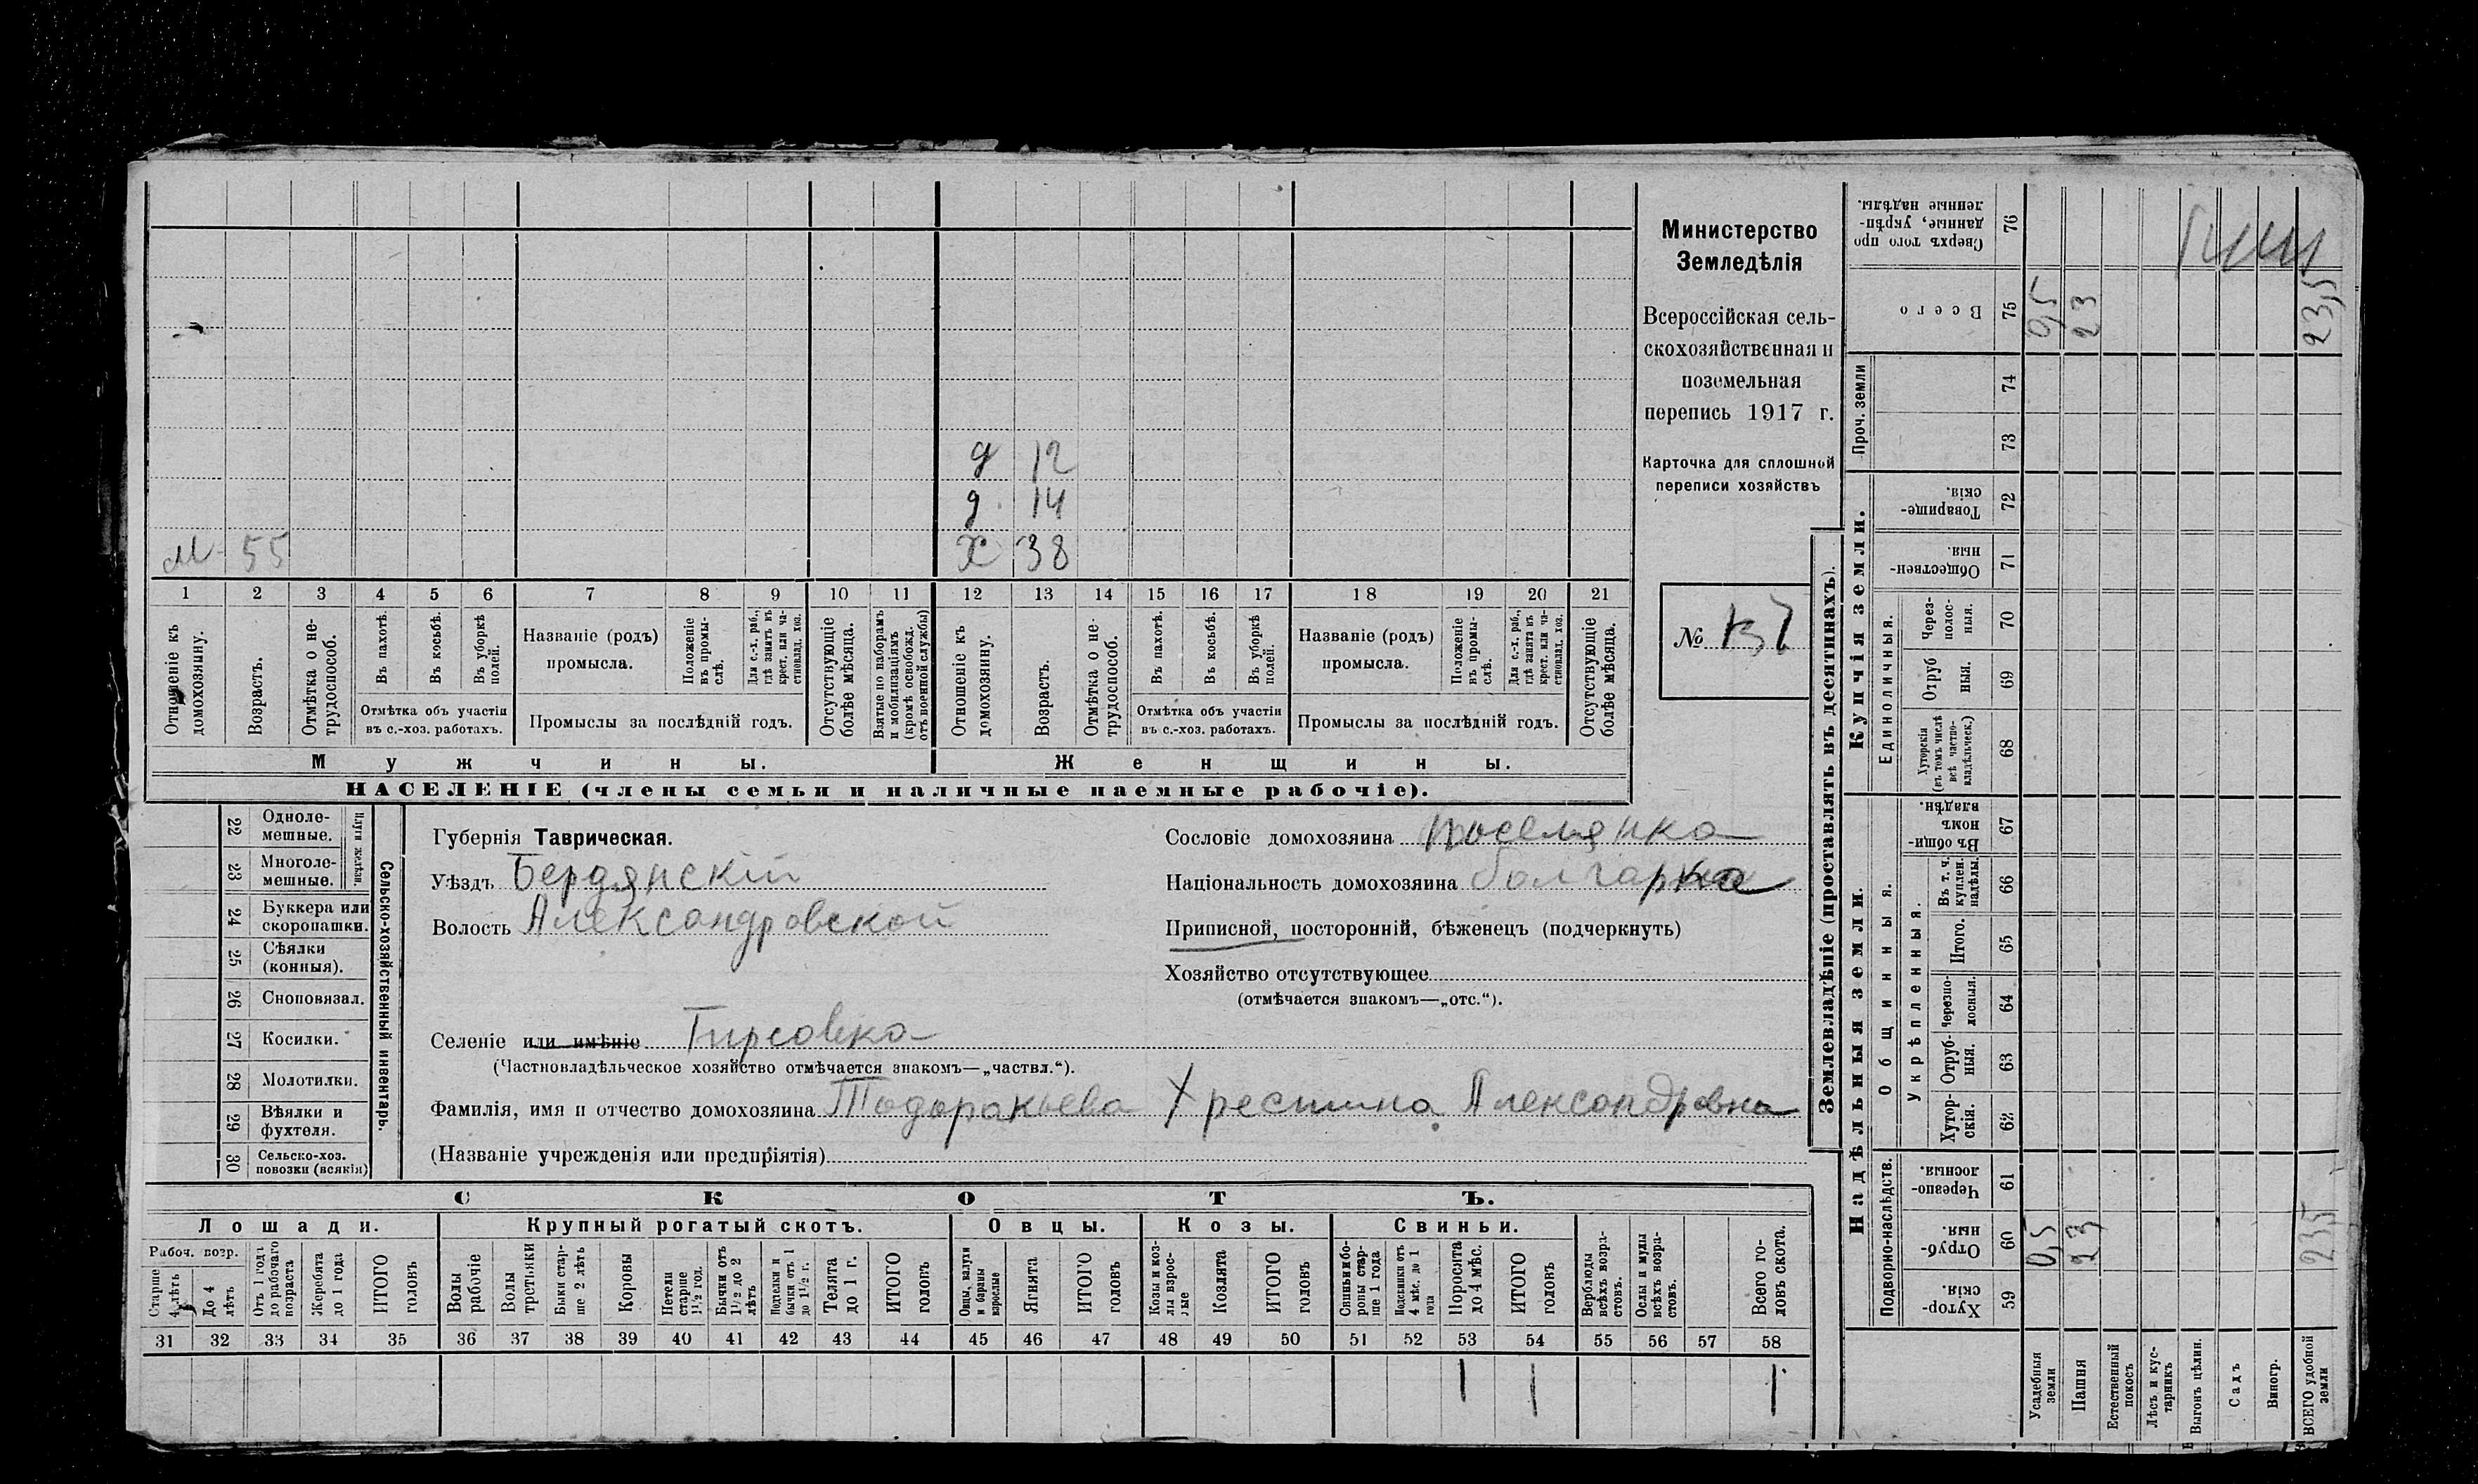 д 12
д. 14
м 55 х 38
1 2 3 4 5 6 7 8 9 10 11 12 13 14 15 16 17 18 19 20 21
Отношеніе къ домохозяину.
Возрастъ.
Отмѣтка о не-трудоспособ.
Въ пахотѣ.
Въ косьбѣ.
Въ уборкѣ полей.
Отмѣтка объ участіи
въ с.-хоз. работахъ.
Названіе (родъ)
промысла.
Положеніе въ промы-слѣ.
Для с.-х. раб., гдѣ занятъ въ крест. или ча-стновлад. хоз.
Промыслы за послѣдній годъ.
Отсутствующіе болѣе мѣсяца.
Взятые по наборамъ и мобилизаціямъ (кромѣ освобожд. отъ военной службы)
Отношеніе къ домохозяину.
Возрастъ.
Отмѣтка о не-трудоспособ.
Въ пахотѣ.
Въ косьбѣ.
Въ уборкѣ полей.
Отмѣтка объ участіи
въ с.-хоз. работахъ.
Названіе (родъ)
промысла.
Положеніе въ промы-слѣ.
Для с.-х. раб., гдѣ занята въ крест. или ча-стновлад. хоз.
Промыслы за послѣдній годъ.
Отсутствующіе болѣе мѣсяца.
Мужчины. Женщины.
НАСЕЛЕНІЕ (члены семьи и наличные наемные рабочіе).
Министерство
Земледѣлія
Всероссійская сель-
скохозяйственная и
поземельная
перепись 1917 г.
Карточка для сплошной
переписи хозяйствъ
№
22 Одноле-мешные.
23 Многоле-мешные.
Плуги желѣзн.
24 Буккера или скоропашки.
25 Сѣялки (конныя).
26 Сноповязал.
27 Косилки.
28 Молотилки.
29 Вѣялки и фухтеля.
30 Сельско-хоз. повозки (всякія)
Сельско-хозяйственный инвентарь.
Губернія Таврическая.
Уѣздъ Бердянскій
Волость Александровской
Селеніе или имѣніе Гирсовка
(Частновладѣльческое хозяйство отмѣчается знакомъ—„частвл.“).
Фамилія, имя и отчество домохозяина Тодоракьева Христина Александровна
(Названіе учрежденія или предпріятія)
Сословіе домохозяина поселянка
Національность домохозяина болгарка
Приписной, посторонній, бѣженецъ (подчеркнуть)
Хозяйство отсутствующее
(отмѣчается знакомъ—„отс.“).
СКОТЪ.
Лошади. Крупный рогатый скотъ. Овцы. Козы. Свиньи.
Рабоч. возр.
Старше 4 лѣтъ
До 4 лѣтъ
Отъ 1 года до рабочаго возраста
Жеребята до 1 года
ИТОГО головъ
Волы рабочіе
Волы третьяки
Быки стар-ше 2 лѣтъ
Коровы
Нетели старше 1½ год.
Бычки отъ 1½ до 2 лѣтъ
Подтелки и бычки отъ 1 до 1½ г.
Телята до 1 г.
ИТОГО головъ
Овцы, валухи и бараны взрослые
Ягнята
ИТОГО головъ
Козы и коз-лы взрос-лые
Козлята
ИТОГО головъ
Свиньи и бо-ровы стар-ше 1 года
Подсвинки отъ 4 мѣс. до 1 года
Поросята до 4 мѣс.
ИТОГО головъ
Верблюды всѣхъ возра-стовъ.
Ослы и мулы всѣхъ возра-стовъ.
Всего го-ловъ скота.
31 32 33 34 35 36 37 38 39 40 41 42 43 44 45 46 47 48 49 50 51 52 53 54 55 56 57 58
1 1 1
Землевладѣніе (проставлять въ десятинахъ).
Купчія земли.
Надѣльныя земли.
Сверхъ того про-данные, укрѣп-ленные надѣлы. 76
Всего 75 0,5 23 23,5
Проч. земли
74
73
Товарище-скія. 72
Обществен-ныя. 71
Единоличныя.
Через-полос-ныя. 70
Отруб-ныя. 69
Хуторскія (въ томъ числѣ всѣ частно-владѣльческ.) 68
Общинныя.
Въ общи-номъ владѣн. 67
Укрѣпленныя.
Въ т. ч. куплен. надѣлы. 66
Итого. 65
Черезпо-лосныя. 64
Отруб-ныя. 63
Хутор-скія. 62
Подворно-наслѣдств.
Черезпо-лосныя. 61
Отруб-ныя. 60 0,5 23 23,5
Хутор-скія. 59
Усадебныя земли
Пашня
Естественный покосъ
Лѣсъ и кус-тарникъ
Выгонъ цѣлин.
Садъ
Виногр.
ВСЕГО удобной земли